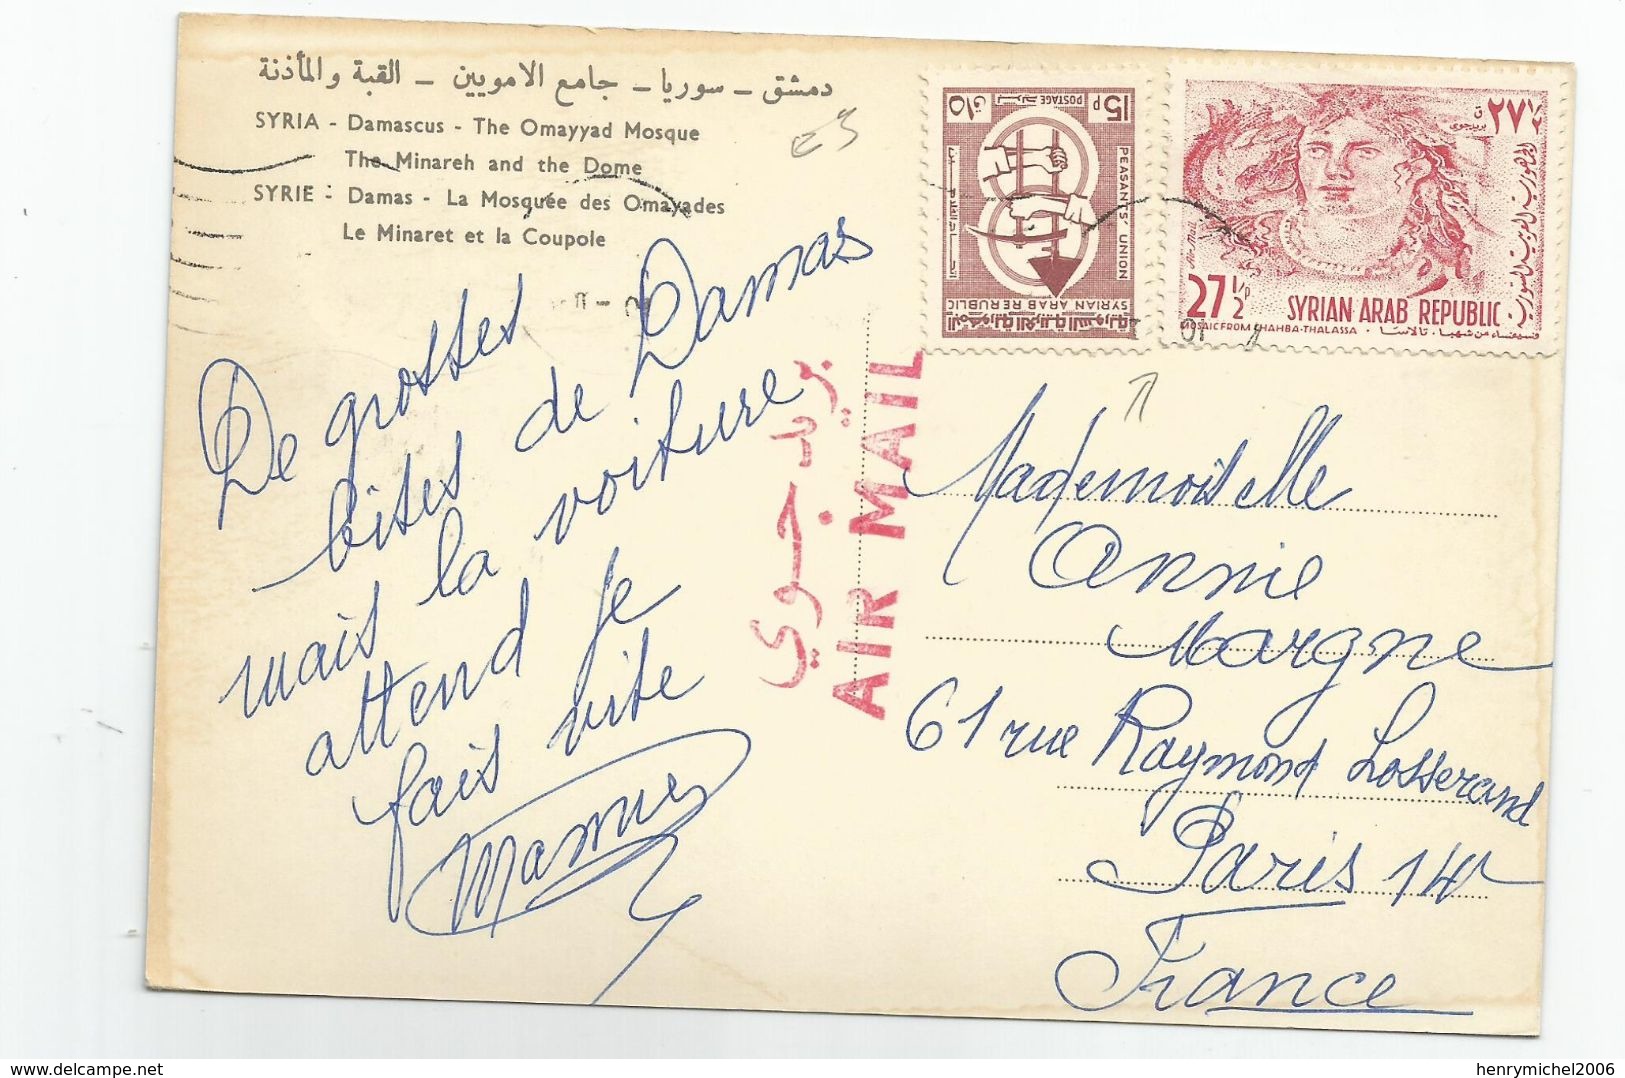 دمشق - سوريا - جامع الامويين - القبة والمأذنة
SYRIA - Damascus - The Omayyad Mosque
The Minareh and the Dome
SYRIE : Damas - La Mosquée des Omayades
Le Minaret et la Coupole
De grosses
bises de Damas
mais la voiture
attend je
fais vite
بريد جوي
AIR MAIL
15 p
POSTAGE
PEASANTS' UNION
SYRIAN ARAB REPUBLIC
الجمهورية العربية السورية
٢٧ ١/٢
بريد جوي
الجمهورية العربية السورية
27 1/2 p
SYRIAN ARAB REPUBLIC
MOSAIC FROM SHAHBA-THALASSA
فسيفساء من شهبا - تالاسا
Mademoiselle
Annie
Margne
61 rue Raymond Losserand
Paris 14
France
henrymichel2006